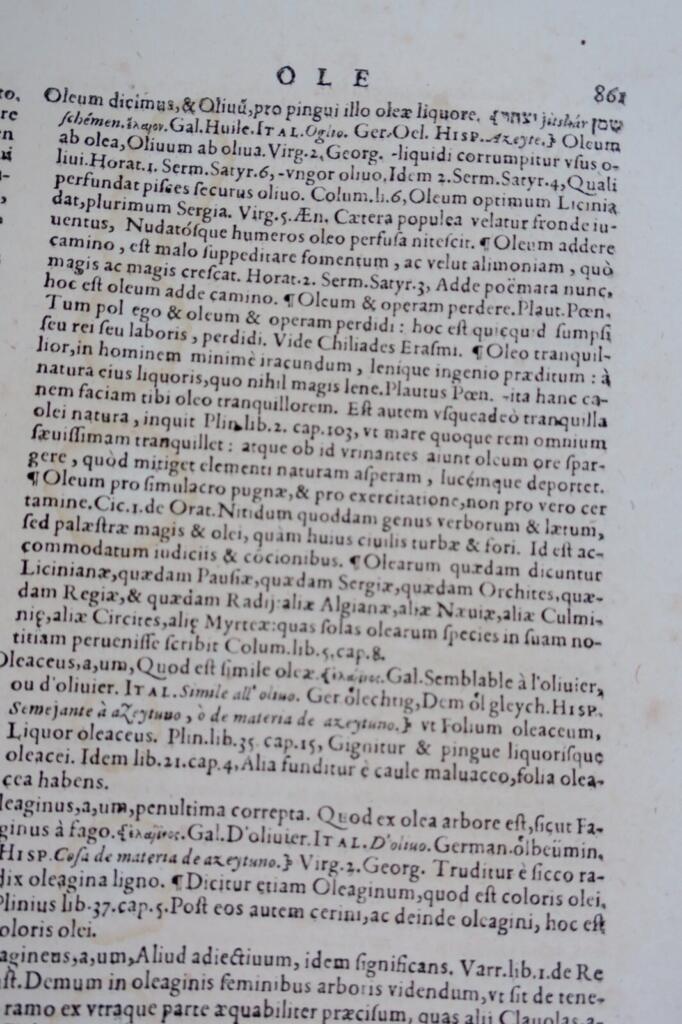 O L E
861
Oleum dicimus, & Oliuũ, pro pingui illo oleæ liquore. {יצהר jitshár שמן
schémen. ἔλαιον. Gal. Huile. ITAL. Oglio. Ger. Oel. HISP. Azeyte.} Oleum
ab olea, Oliuum ab oliua. Virg. 2, Georg. -liquidi corrumpitur vsus o-
liui. Horat. 1. Serm. Satyr. 6, -vngor oliuo, Idem 2. Serm. Satyr. 4, Quali
perfundat pisces securus oliuo. Colum. li. 6, Oleum optimum Licinia
dat, plurimum Sergia. Virg. 5. Æn. Cætera populea velatur fronde iu-
uentus, Nudatósque humeros oleo perfusa nitescit. ¶ Oleum addere
camino, est malo suppeditare fomentum, ac velut alimoniam, quò
magis ac magis crescat. Horat. 2. Serm. Satyr. 3, Adde poëmata nunc,
hoc est oleum adde camino. ¶ Oleum & operam perdere. Plaut. Pœn.
Tum pol ego & oleum & operam perdidi: hoc est quicquid sumpsi
seu rei seu laboris, perdidi. Vide Chiliades Erasmi. ¶ Oleo tranquil-
lior, in hominem minimè iracundum, lenique ingenio præditum: à
natura eius liquoris, quo nihil magis lene. Plautus Pœn. -ita hanc ca-
nem faciam tibi oleo tranquillorem. Est autem vsqueadeò tranquilla
olei natura, inquit Plin. lib. 2. cap. 103, vt mare quoque rem omnium
sæuissimam tranquillet: atque ob id vrinantes aiunt oleum ore spar-
gere, quòd mitiget elementi naturam asperam, lucémque deportet.
¶ Oleum pro simulacro pugnæ, & pro exercitatione, non pro vero cer
tamine. Cic. 1. de Orat. Nitidum quoddam genus verborum & lætum,
sed palæstræ magis & olei, quàm huius ciuilis turbæ & fori. Id est ac-
commodatum iudiciis & cōcionibus. ¶ Olearum quædam dicuntur
Licinianæ, quædam Pausiæ, quædam Sergiæ, quædam Orchites, quæ-
dam Regiæ, & quædam Radij: aliæ Algianæ, aliæ Næuiæ, aliæ Culmi-
nię, aliæ Circites, alię Myrteæ: quas solas olearum species in suam no-
titiam peruenisse scribit Colum. lib. 5. cap. 8.
Oleaceus, a, um, Quod est simile oleæ. Gal. Semblable à l'oliuier,
ou d'oliuier. ITAL. Simile all' oliuo. Ger ölechtig, Dem öl gleych. HISP.
Semejante à aZeytuno, ò de materia de azeytuno.} vt Folium oleaceum,
Liquor oleaceus. Plin. lib. 35. cap. 15, Gignitur & pingue liquorisque
oleacei. Idem lib. 21. cap. 4, Alia funditur è caule maluaceo, folia olea-
cea habens.
leaginus, a, um, penultima correpta. Quod ex olea arbore est, sicut Fa-
ginus à fago. Gal. D'oliuier. ITAL. D'oliuo. German. ölbeümin.
HISP. Cosa de materia de azeytuno.} Virg. 2. Georg. Truditur è sicco ra-
dix oleagina ligno. ¶ Dicitur etiam Oleaginum, quod est coloris olei.
Plinius lib. 37. cap. 5. Post eos autem cerini, ac deinde oleagini, hoc est
oloris olei.
agineus, a, um, Aliud adiectiuum, idem significans. Varr. lib. 1. de Re
st. Demum in oleaginis seminibus arboris videndum, vt sit de tene-
ramo ex vtraque parte æquabiliter præcisum, quas alij Clauolas, a-